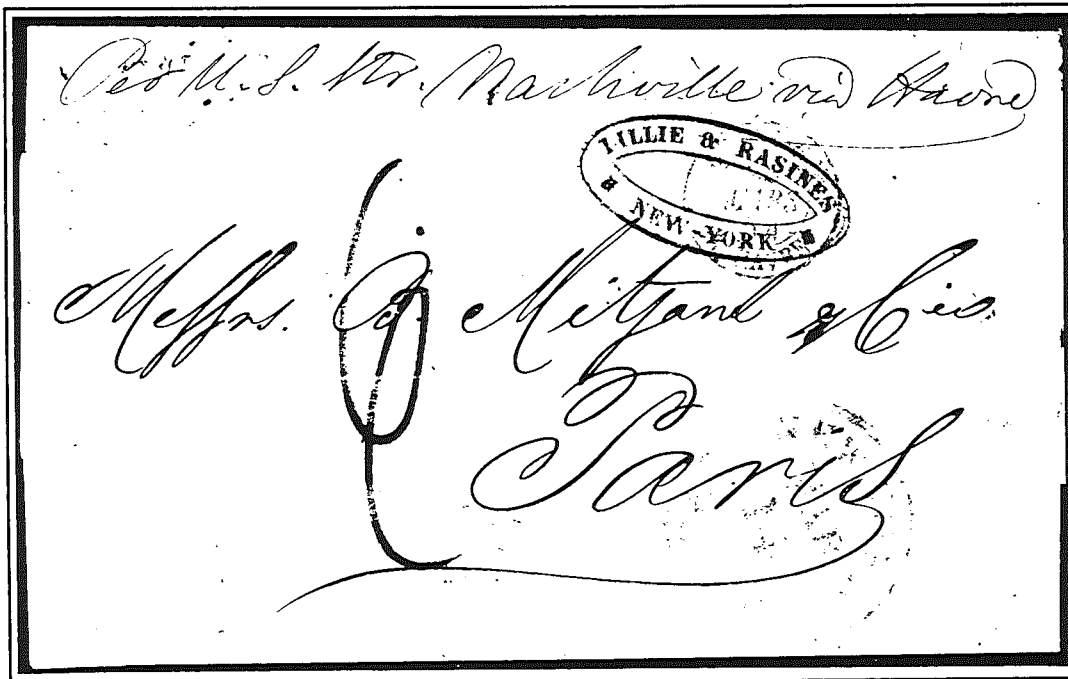 Per U.S. Str. Nashville via Havre
LILLIE & RASINES
NEW-YORK
Messrs. Mitjans & Cie.
Paris